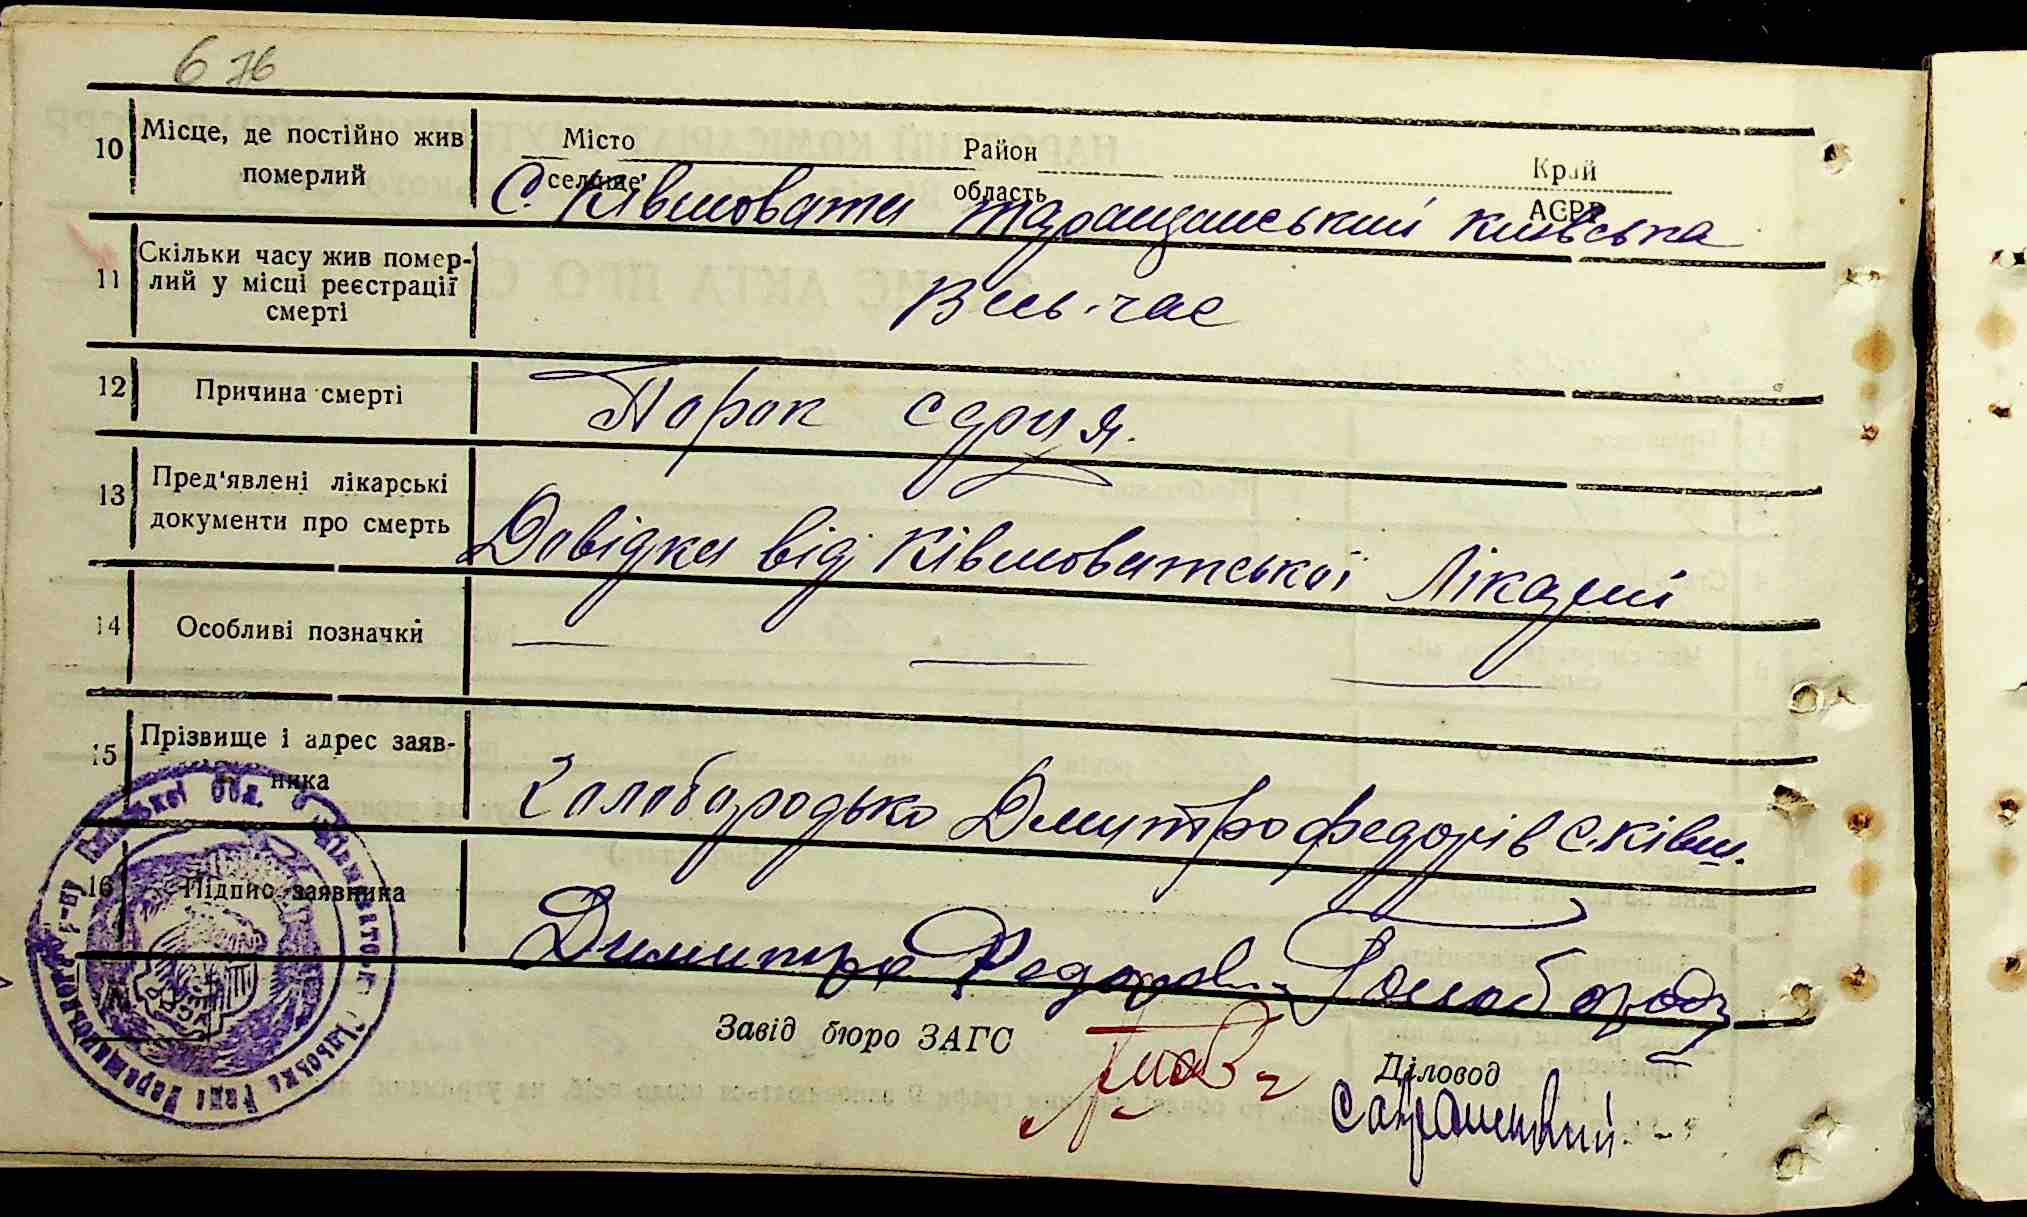 676
10 Місце, де постійно жив померлий
Місто селище Район область Край АСРР
с. Ківшовата Таращанський Київська
11 Скільки часу жив помер-
лий у місці реєстрації
смерті
Весь час
12 Причина смерті
Порок серця.
13 Пред'явлені лікарські
документи про смерть
Довідка від Ківшоватської Лікарні
14 Особливі позначки
15 Прізвище і адрес заяв-
ника
Голобородько Дмитро Федорів с. Ківш.
16 Підпис заявника
Димитро Федоров
Завід бюро ЗАГС
Діловод